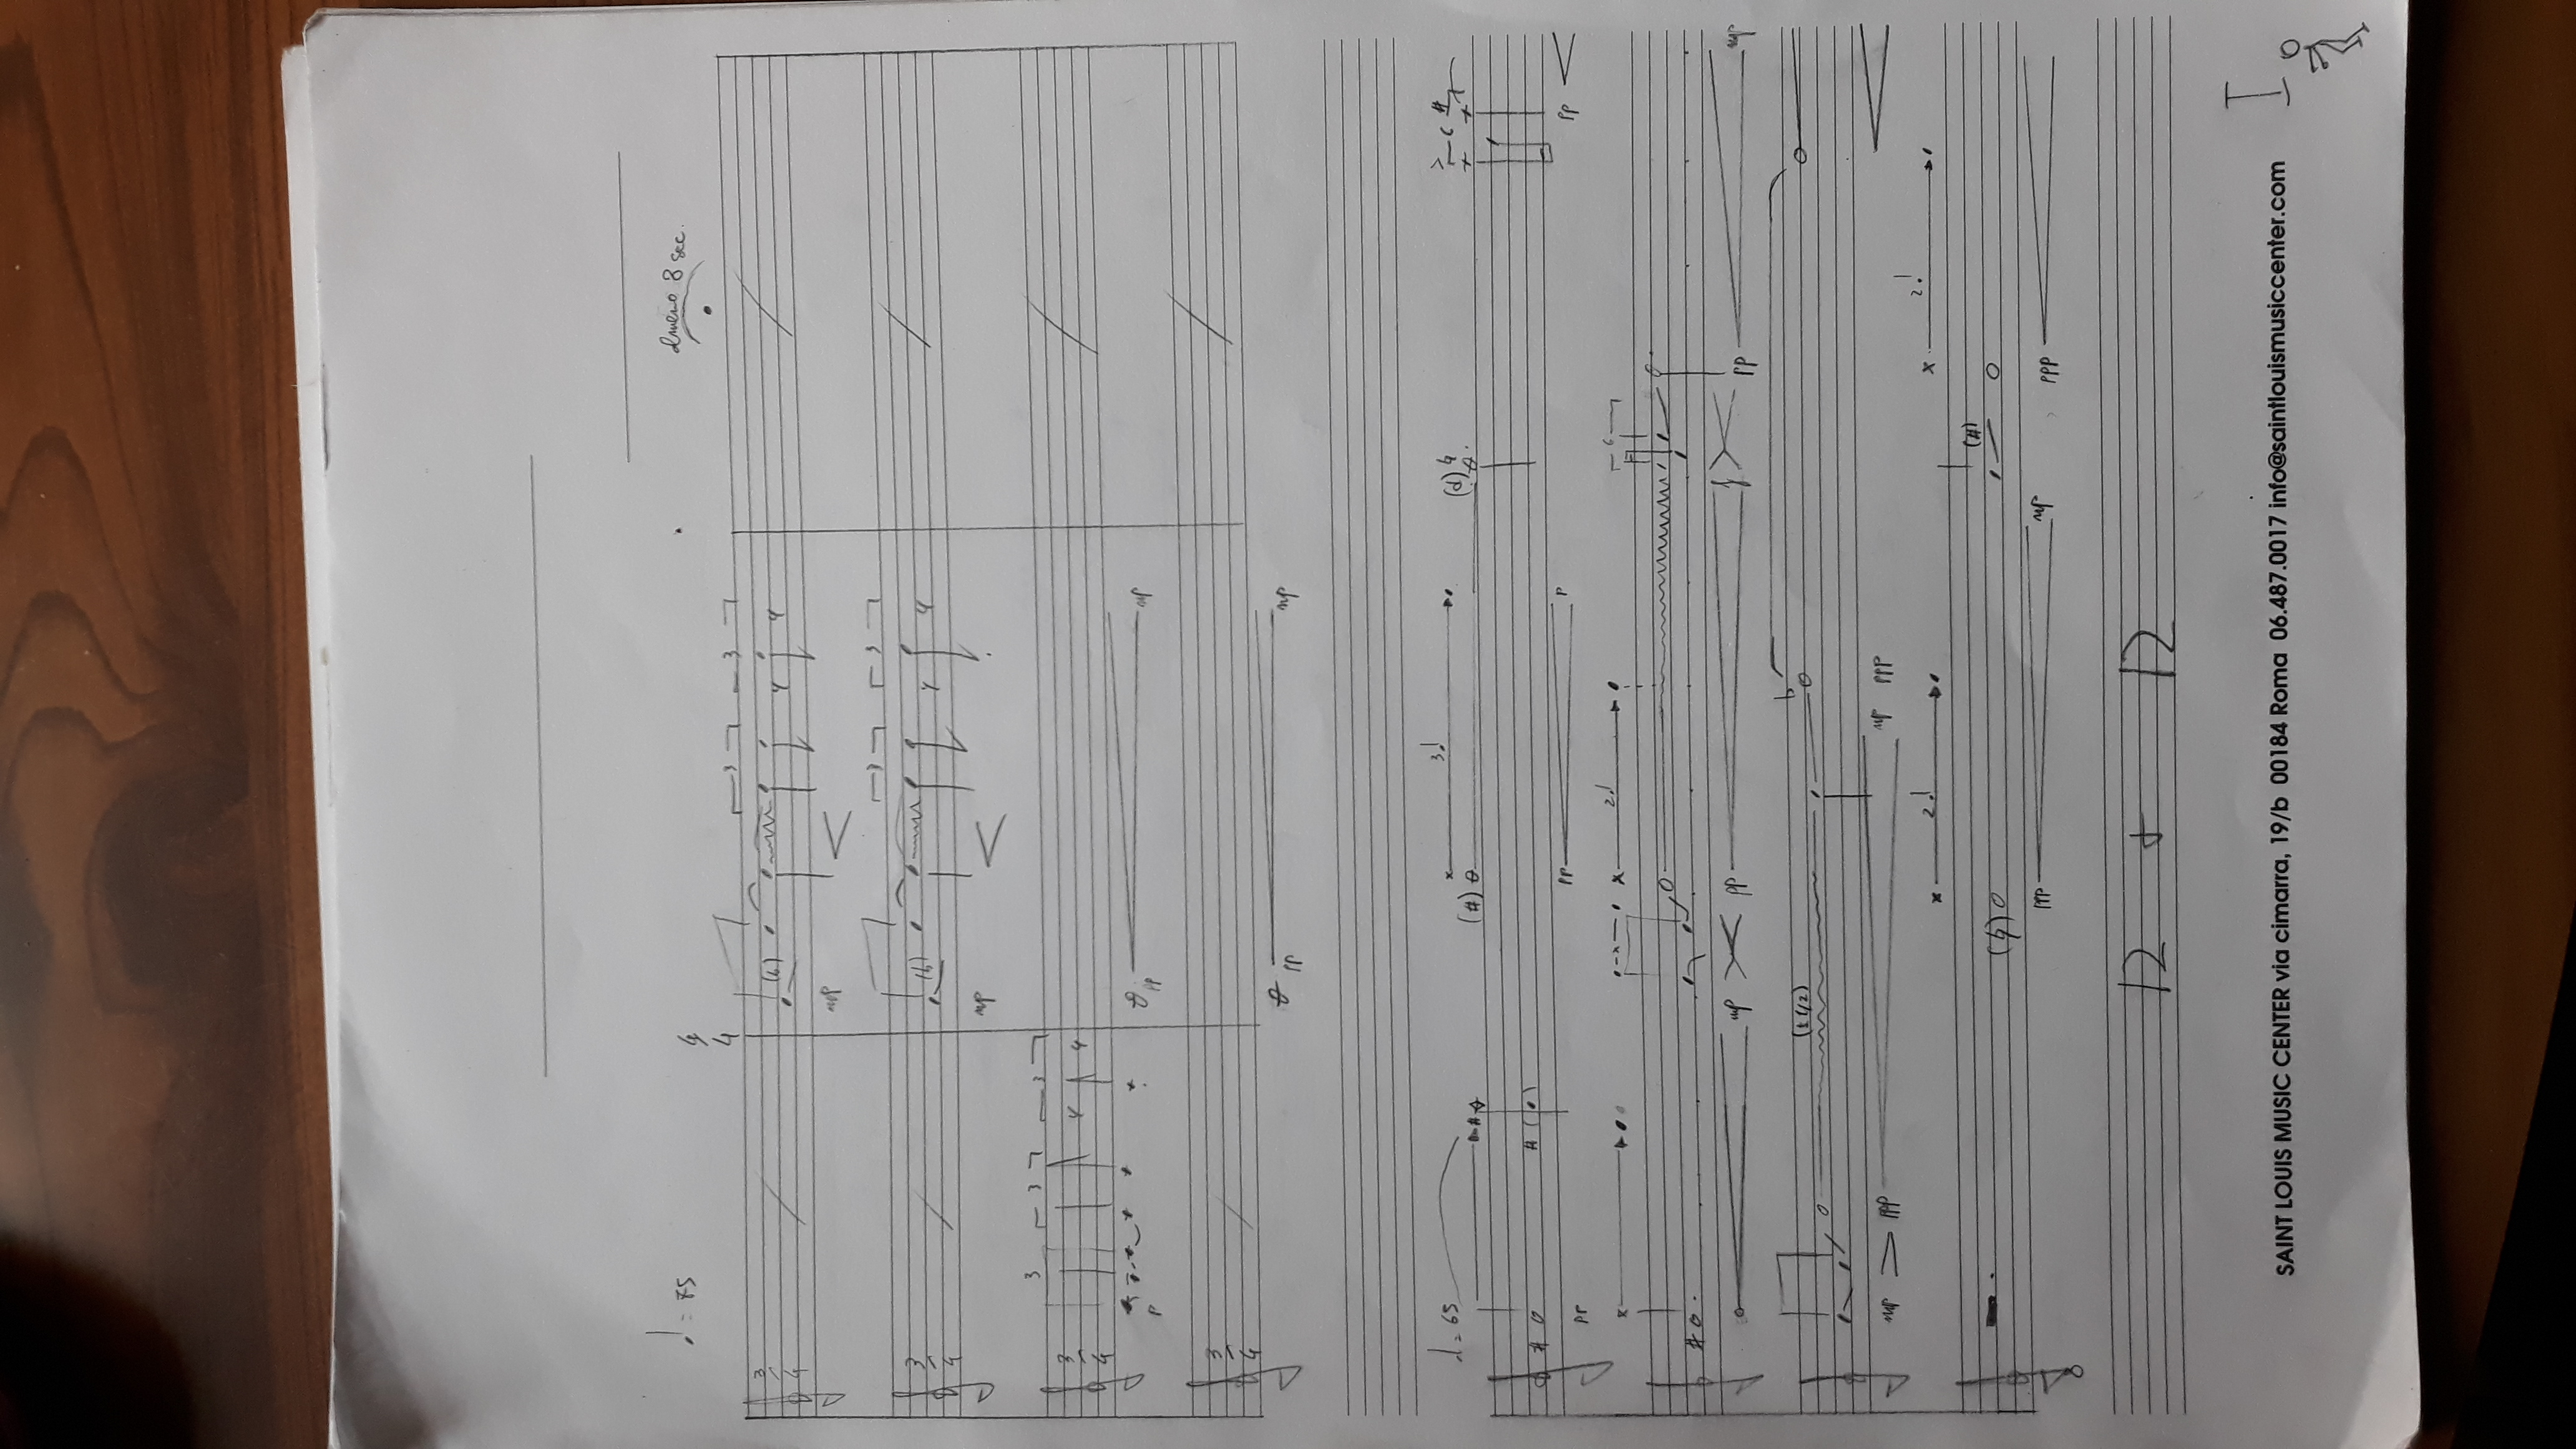 ♩= 75
4
4
almeno 8 sec.
3 3
3
4
(♮)
mp
3 3
3
4
(♮)
mp
3 3 3
3
4
p
pp mp
3
4
pp mp
♩= 65
3♩
(#) (d) ♮ > 6 #
# # ( )
pp pp p pp
2♩ 6
#
mp pp f pp mp
(± 1/2) b
mp ppp mp ppp
2♩ 2♩
(♮) (#)
ppp mp ppp
12 + 12
I
SAINT LOUIS MUSIC CENTER via cimarra, 19/b 00184 Roma 06.487.0017 info@saintlouismusiccenter.com